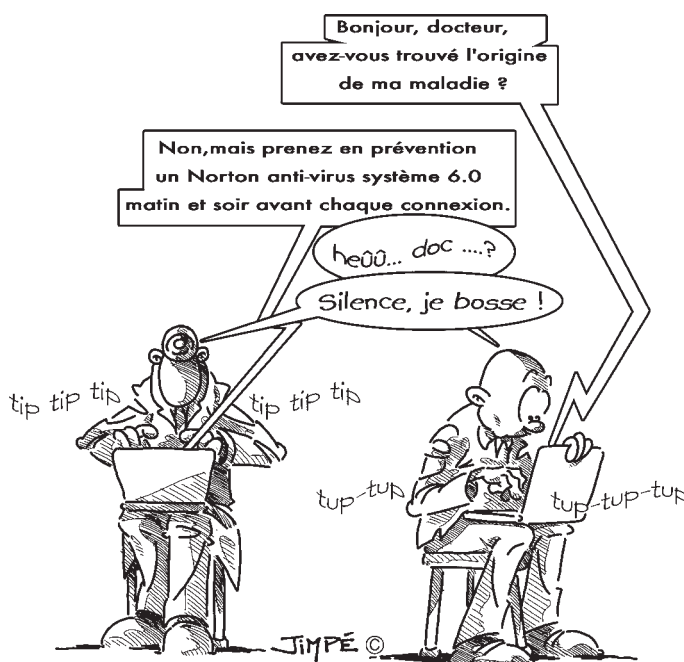 Bonjour, docteur,
avez-vous trouvé l'origine
de ma maladie ?
Non,mais prenez en prévention
un Norton anti-virus système 6.0
matin et soir avant chaque connexion.
heûû... doc ....?
Silence, je bosse !
tip tip tip
tip tip tip
tup-tup
tup-tup-tup
JiMPÉ ©